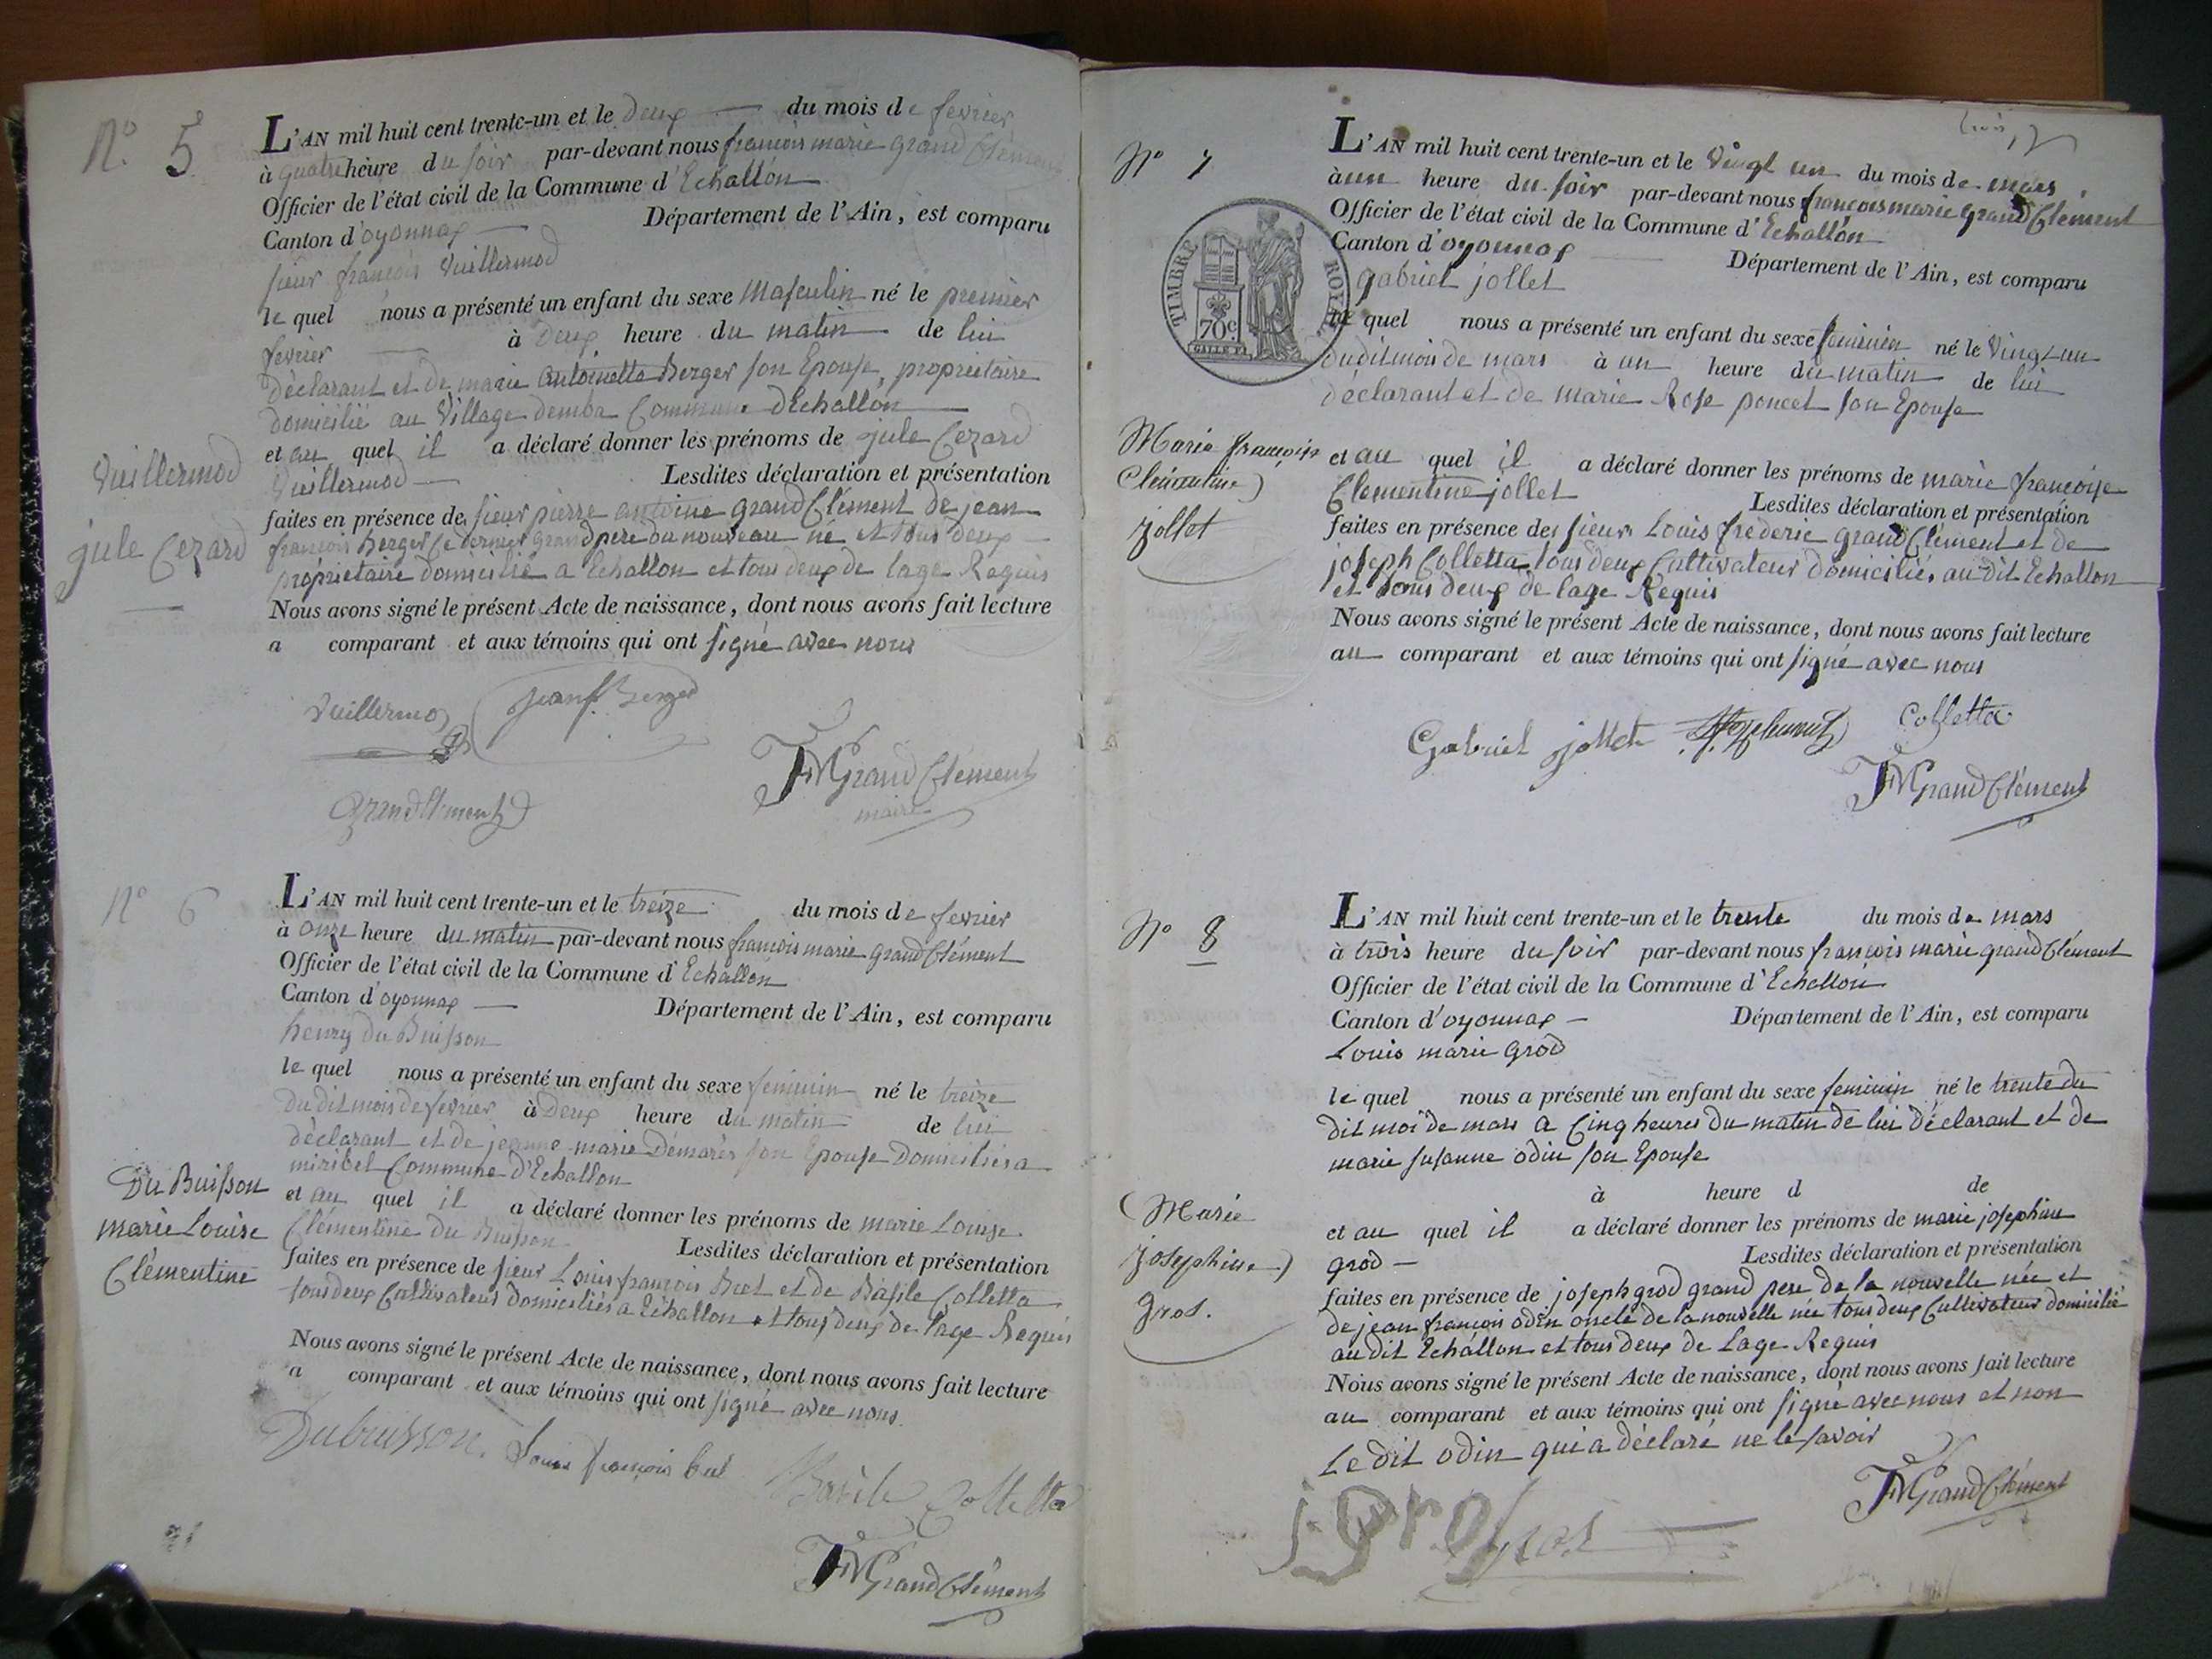 N.º 5
L'AN mil huit cent trente-un et le deux du mois de fevrier
à quatre heure du soir par-devant nous francois marie grand Clément
Officier de l'état civil de la Commune d'Echallon
Canton d'oyonnax Département de l'Ain, est comparu
sieur francois Vuillermod
le quel nous a présenté un enfant du sexe Masculin né le premier
fevrier à deux heure du matin de lui
déclarant et de marie antoinette Berger son Epouse, proprietaire
domicilié au Village demba Commune dEchallon
et au quel il a déclaré donner les prénoms de jule Cezard
Vuillermod Lesdites déclaration et présentation
Vuillermod
jule Cezard
faites en présence de sieur pierre antoine grand Clément de jean
francois berger Ce dernier grand pere du nouveau né et tous deux
proprietaire domicilié a Echallon et tous deux de lage Requis
Nous avons signé le présent Acte de naissance, dont nous avons fait lecture
a comparant et aux témoins qui ont signé avec nous
Vuillermoz jean f. berger
FMGrandClément
maire
Grandclément
N.º 6
L'AN mil huit cent trente-un et le treize du mois de fevrier
à onze heure du matin par-devant nous francois marie grand Clément
Officier de l'état civil de la Commune d'Echallon
Canton d'oyonnax Département de l'Ain, est comparu
henry du Buisson
le quel nous a présenté un enfant du sexe feminin né le treize
du dit mois de fevrier à deux heure du matin de lui
déclarant et de jeanne marie Démarès son Epouse Domiciliés a
miribel Commune d'Echallon
et au quel il a déclaré donner les prénoms de marie Louise
Clémentine du Buisson Lesdites déclaration et présentation
Du Buisson
marie Louise
Clémentine
faites en présence de sieur Louis francois buet et de Basile Colletta
tous deux Cultivateurs domiciliés a Echallon et tous deux de l'age Requis
Nous avons signé le présent Acte de naissance, dont nous avons fait lecture
a comparant et aux témoins qui ont signé avec nous
Dubuisson. Louis françois Basile Colletta
FMGrandClément
Nº 7
TIMBRE ROYAL
70c
L'AN mil huit cent trente-un et le Vingt un du mois de mars
à un heure du soir par-devant nous francois marie grand Clément
Officier de l'état civil de la Commune d'Echallon
Canton d'oyonnax Département de l'Ain, est comparu
gabriel jollet
le quel nous a présenté un enfant du sexe feminin né le Vingt un
du dit mois de mars à un heure du matin de lui
déclarant et de marie Rose poncet son Epouse
Marie françoise
Clémentine
jollet
et au quel il a déclaré donner les prénoms de marie françoise
Clementine jollet Lesdites déclaration et présentation
faites en présence des sieur Louis frederic grand Clément et de
joseph Colletta tous deux Cultivateurs domiciliés au dit Echallon
et tous deux de lage Requis
Nous avons signé le présent Acte de naissance, dont nous avons fait lecture
au comparant et aux témoins qui ont signé avec nous
Gabriel jollet Colletta
FMGrandClément
Nº 8
L'AN mil huit cent trente-un et le trente du mois de mars
à trois heure du soir par-devant nous francois marie grand Clément
Officier de l'état civil de la Commune d'Echallon
Canton d'oyonnax Département de l'Ain, est comparu
Louis marie grod
le quel nous a présenté un enfant du sexe feminin né le trente du
dit moi de mars a Cinq heures du matin de lui déclarant et de
marie susanne odin son Epouse
à heure d de
Marie
josephine
gros.
et au quel il a déclaré donner les prénoms de marie josephine
grod Lesdites déclaration et présentation
faites en présence de joseph grod grand pere de la nouvelle née et
de jean francois odin oncle de la nouvelle née tous deux Cultivateur domicilié
au dit Echallon et tous deux de Lage Requis
Nous avons signé le présent Acte de naissance, dont nous avons fait lecture
au comparant et aux témoins qui ont signé avec nous et non
Le dit odin qui a déclaré ne le savoir
FMGrandClément
j gros gros